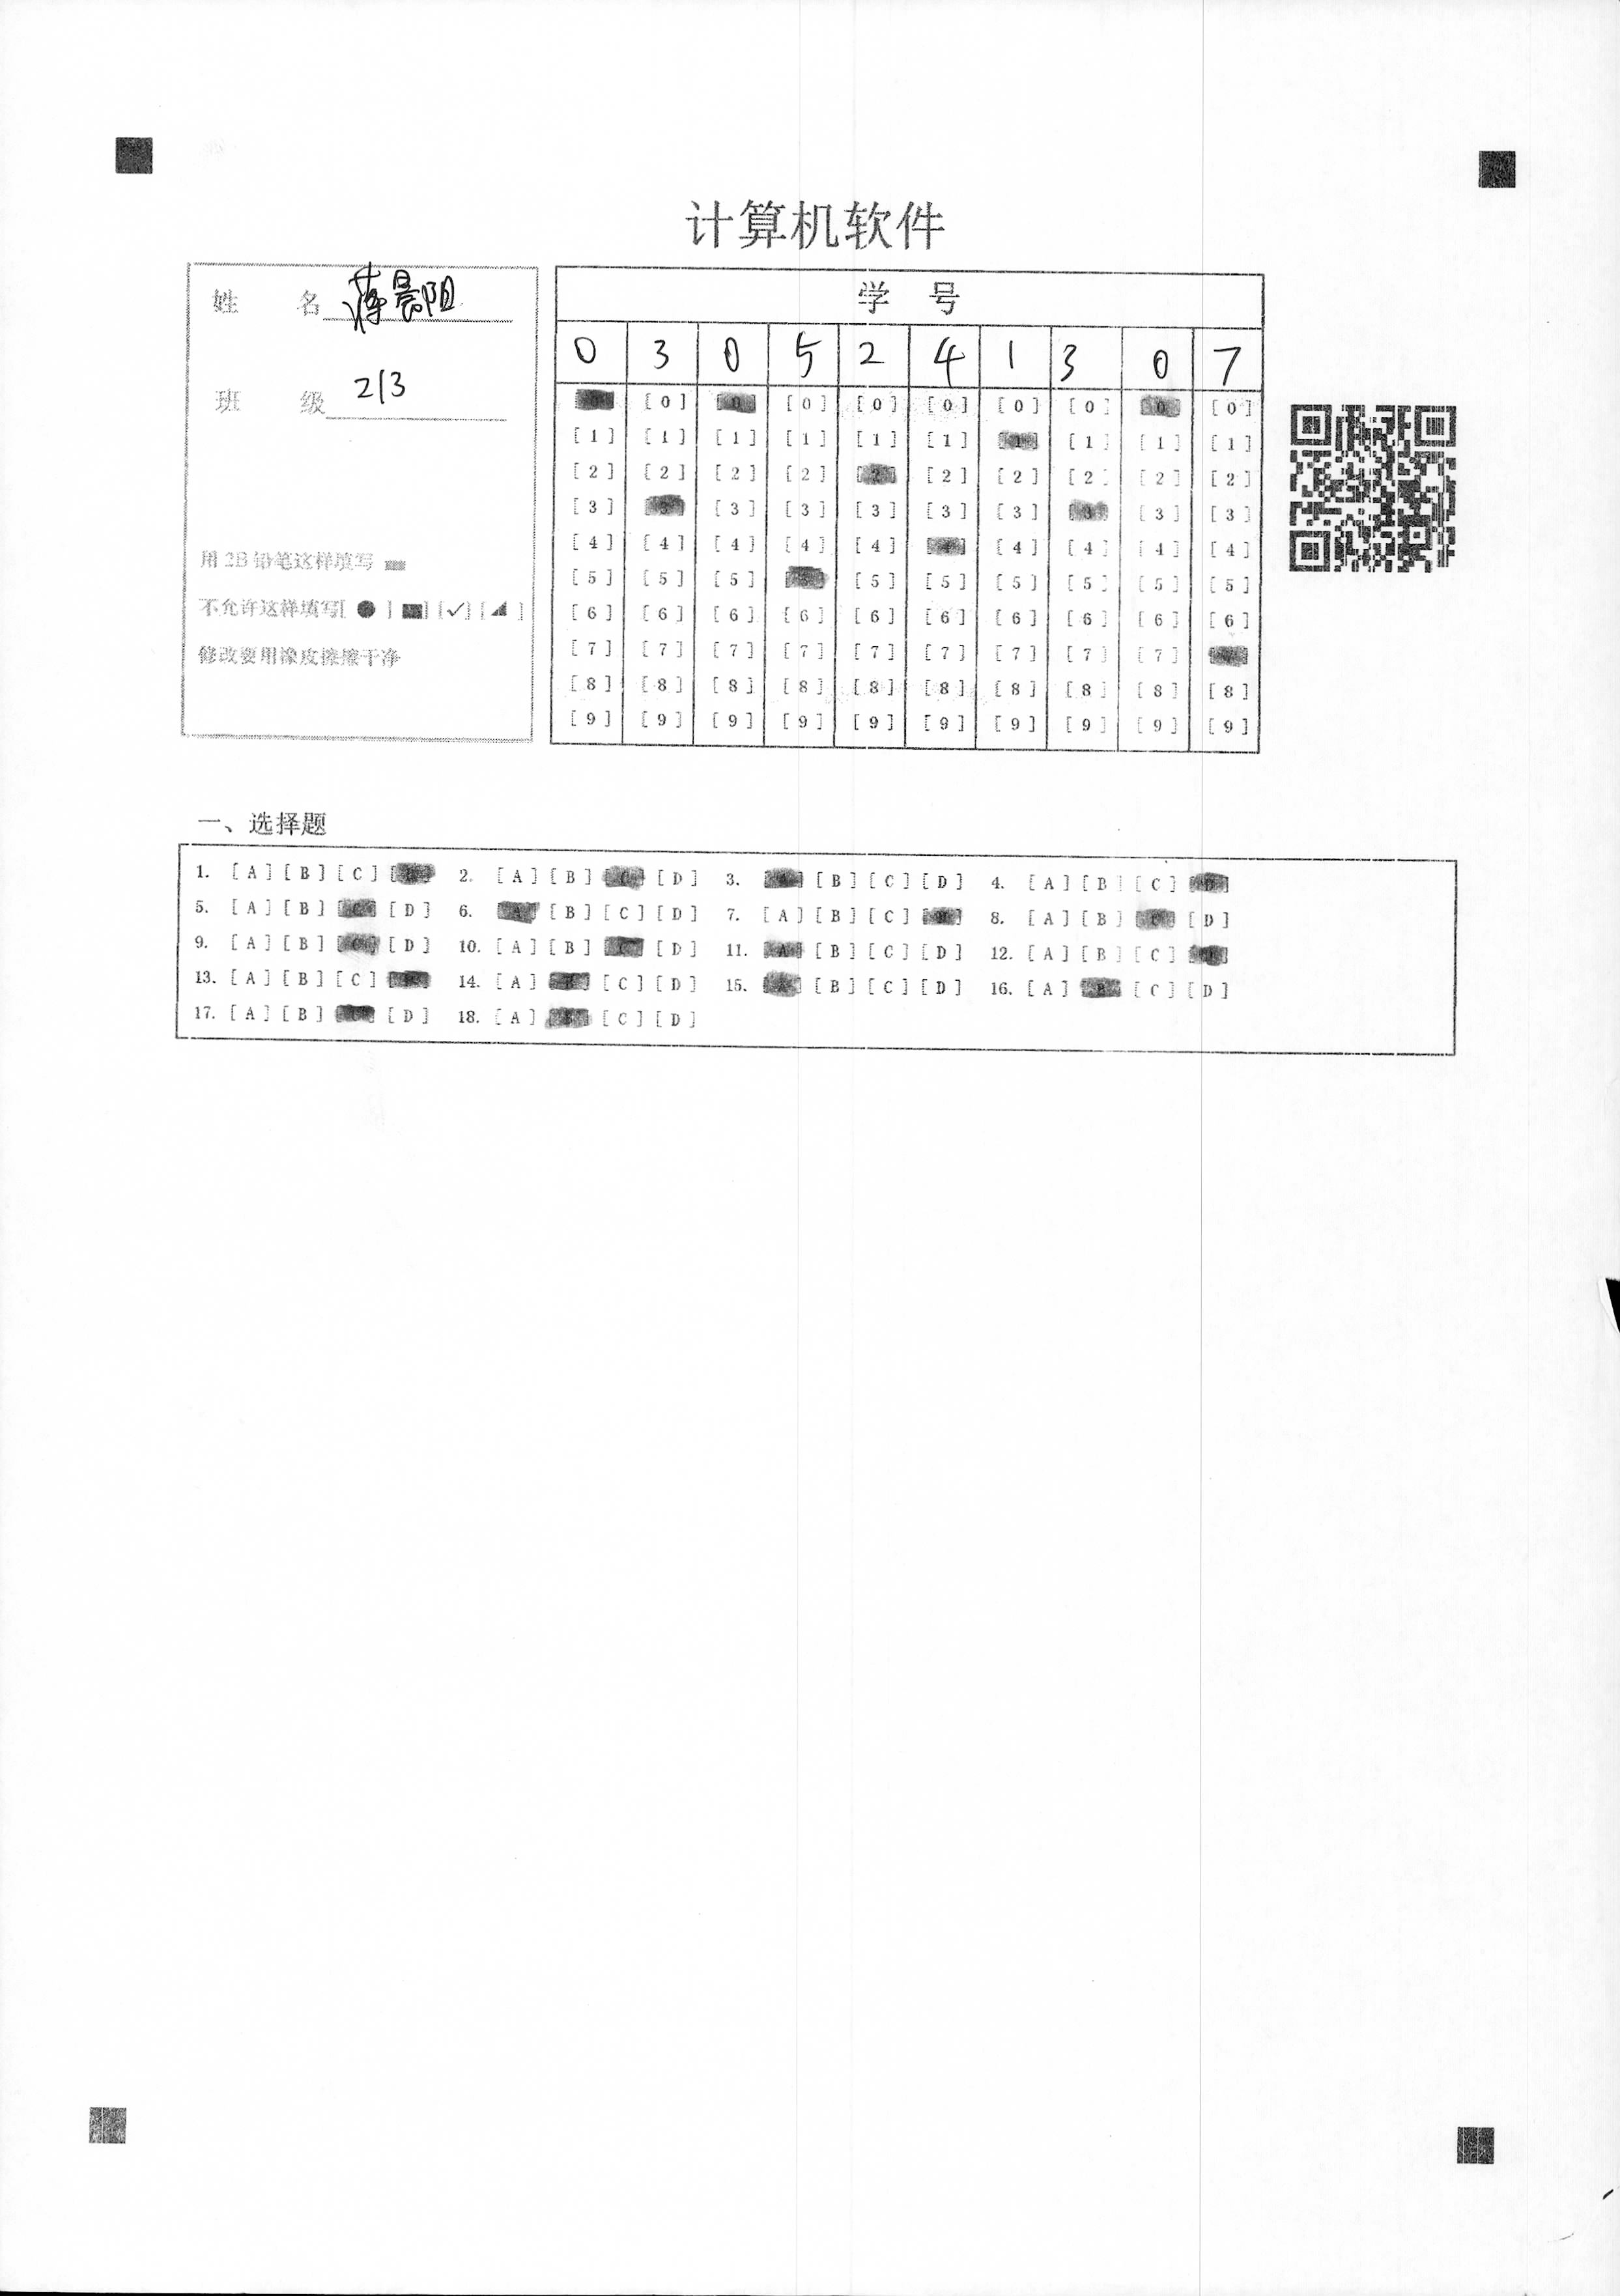 计算机软件
姓 名 晨阳
班 级 213
用 2B 铅笔这样填写
不允许这样填写[ ● ] [■] [✓] [◢ ]
修改要用橡皮擦擦干净
学 号
0 3 0 5 2 4 1 3 0 7
[0] [0] [0] [0] [0] [0] [0] [0] [0] [0]
[1] [1] [1] [1] [1] [1] [1] [1] [1] [1]
[2] [2] [2] [2] [2] [2] [2] [2] [2] [2]
[3] [3] [3] [3] [3] [3] [3] [3] [3] [3]
[4] [4] [4] [4] [4] [4] [4] [4] [4] [4]
[5] [5] [5] [5] [5] [5] [5] [5] [5] [5]
[6] [6] [6] [6] [6] [6] [6] [6] [6] [6]
[7] [7] [7] [7] [7] [7] [7] [7] [7] [7]
[8] [8] [8] [8] [8] [8] [8] [8] [8] [8]
[9] [9] [9] [9] [9] [9] [9] [9] [9] [9]
一、选择题
1. [A] [B] [C] [D] 2. [A] [B] [C] [D] 3. [A] [B] [C] [D] 4. [A] [B] [C] [D]
5. [A] [B] [C] [D] 6. [A] [B] [C] [D] 7. [A] [B] [C] [D] 8. [A] [B] [C] [D]
9. [A] [B] [C] [D] 10. [A] [B] [C] [D] 11. [A] [B] [C] [D] 12. [A] [B] [C] [D]
13. [A] [B] [C] [D] 14. [A] [B] [C] [D] 15. [A] [B] [C] [D] 16. [A] [B] [C] [D]
17. [A] [B] [C] [D] 18. [A] [B] [C] [D]